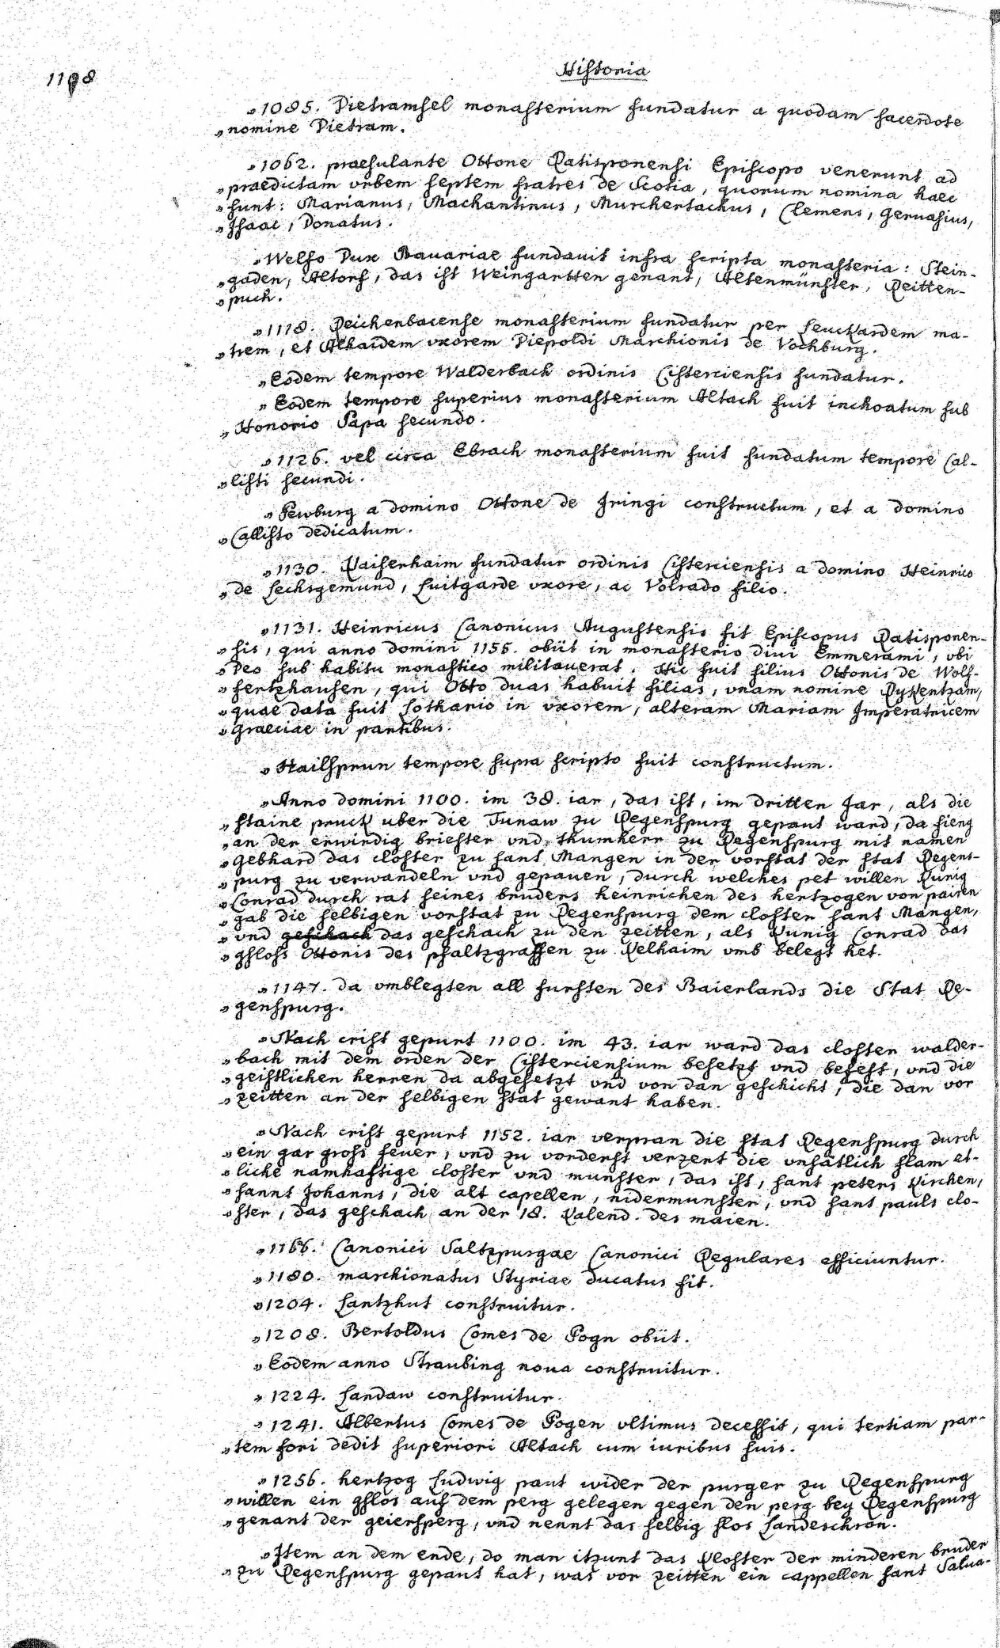 1198
Historia
„1085. Dietramsel monasterium fundatur a quodam sacerdote
„nomine Dietram.
„1062. praesulante Ottone Ratisponensi Episcopo venerunt ad
„praedictam vrbem septem fratres de Scotia, quorum nomina haec
„sunt: Marianus, Machantinus, Murchertachus, Clemens, Geruasius,
„Isaac, Donatus.
„Welfo Dux Bauariae fundauit infra scripta monasteria: Stein-
„gaden, Altorf, das ist Weingartten genant, Altenmünster, Reitten-
„puch.
„1118. Reichenbacense monasterium fundatur per Leuckardem ma-
„trem, et Alhaidem vxorem Diepoldi Marchionis de Vochburg.
„Eodem tempore Walderbach ordinis Cisterciensis fundatur.
„Eodem tempore superius monasterium Altach fuit inchoatum sub
„Honorio Papa secundo.
„1126. vel circa Ebrach monasterium fuit fundatum tempore Cal-
„listi secundi.
„Pewburg a domino Ottone de Iringi constructum, et a domino
„Callisto dedicatum.
„1130. Kaiserhaim fundatur ordinis Cisterciensis a domino Heinrico
„de Lechsgemund, Luitgarde vxore, ac Volrado filio.
„1131. Heinricus Canonicus Augustensis fit Episcopus Ratisponen-
„sis, qui anno domini 1155. obiit in monasterio diui Emmerami, vbi
„Deo sub habitu monastico militauerat. Hic fuit filius Ottonis de Wolf-
„fertzhausen, qui Otto duas habuit filias, vnam nomine Rykentzam,
„quae data fuit Lothario in vxorem, alteram Mariam Imperatricem
„Graeciae in partibus.
„Hailsprun tempore supra scripto fuit constructum.
„Anno domini 1100. im 38. iar, das ist, im dritten Jar, als die
„staine pruck uber die Tunaw zu Regenspurg gepaut ward, da fieng
„an der erwirdig briester vnd thumherr zu Regenspurg mit namen
„Gebhard das closter zu sant Mangen in der vorstat der stat Regens-
„purg zu verwandeln vnd gepauen, durch welches pet willen Kunig
„Conrad durch rat seines bruders heinrichen des hertzogen von pairen
„gab die selbigen vorstat zu Regenspurg dem closter sant Mangen,
„vnd geschach das geschach zu den zeitten, als Kunig Conrad das
„gslohs Ottonis des phaltzgraffen zu Kelhaim vmb belegt het.
„1147. da vmblegten all fursten des Baierlands die Stat Re-
„genspurg.
„Nach crist gepurt 1100. im 43. iar ward das closter walder-
„bach mit dem orden der Cisterciensium besetzt vnd befest, vnd die
„geistlichen herren da abgesetzt vnd von dan geschickt, die dan vor
„zeitten an der selbigen stat gewant haben.
„Nach crist gepurt 1152. iar verpran die stat Regenspurg durch
„ein gar grohs feuer, vnd zu vorderst verzert die vnsätlich flam et-
„liche namhaftige closter vnd munster, das ist, sant peters Kirchen,
„sannt Johanns, die alt capellen, nidermunster, vnd sant pauls clo-
„ster, das geschach an der 18. Kalend. des maien.
„1166. Canonici Saltzpurgae Canonici Regulares efficiuntur.
„1180. marchionatus Styriae ducatus fit.
„1204. Lantzhut construitur.
„1208. Bertoldus Comes de Pogn obiit.
„Eodem anno Straubing noua construitur.
„1224. Landaw construitur.
„1241. Albertus Comes de Pogen vltimus decessit, qui tertiam par-
„tem fori dedit superiori Altach cum iuribus suis.
„1256. hertzog Ludwig paut wider der purger zu Regenspurg
„willen ein gslos auf dem perg gelegen gegen den perg bey Regenspurg
„genant der geiersperg, vnd nennt das selbig slos Landeschron.
„Item an dem ende, do man itzunt das Kloster der minderen bruder
„zu Regenspurg gepaut hat, was vor zeitten ein cappellen sant Salua-